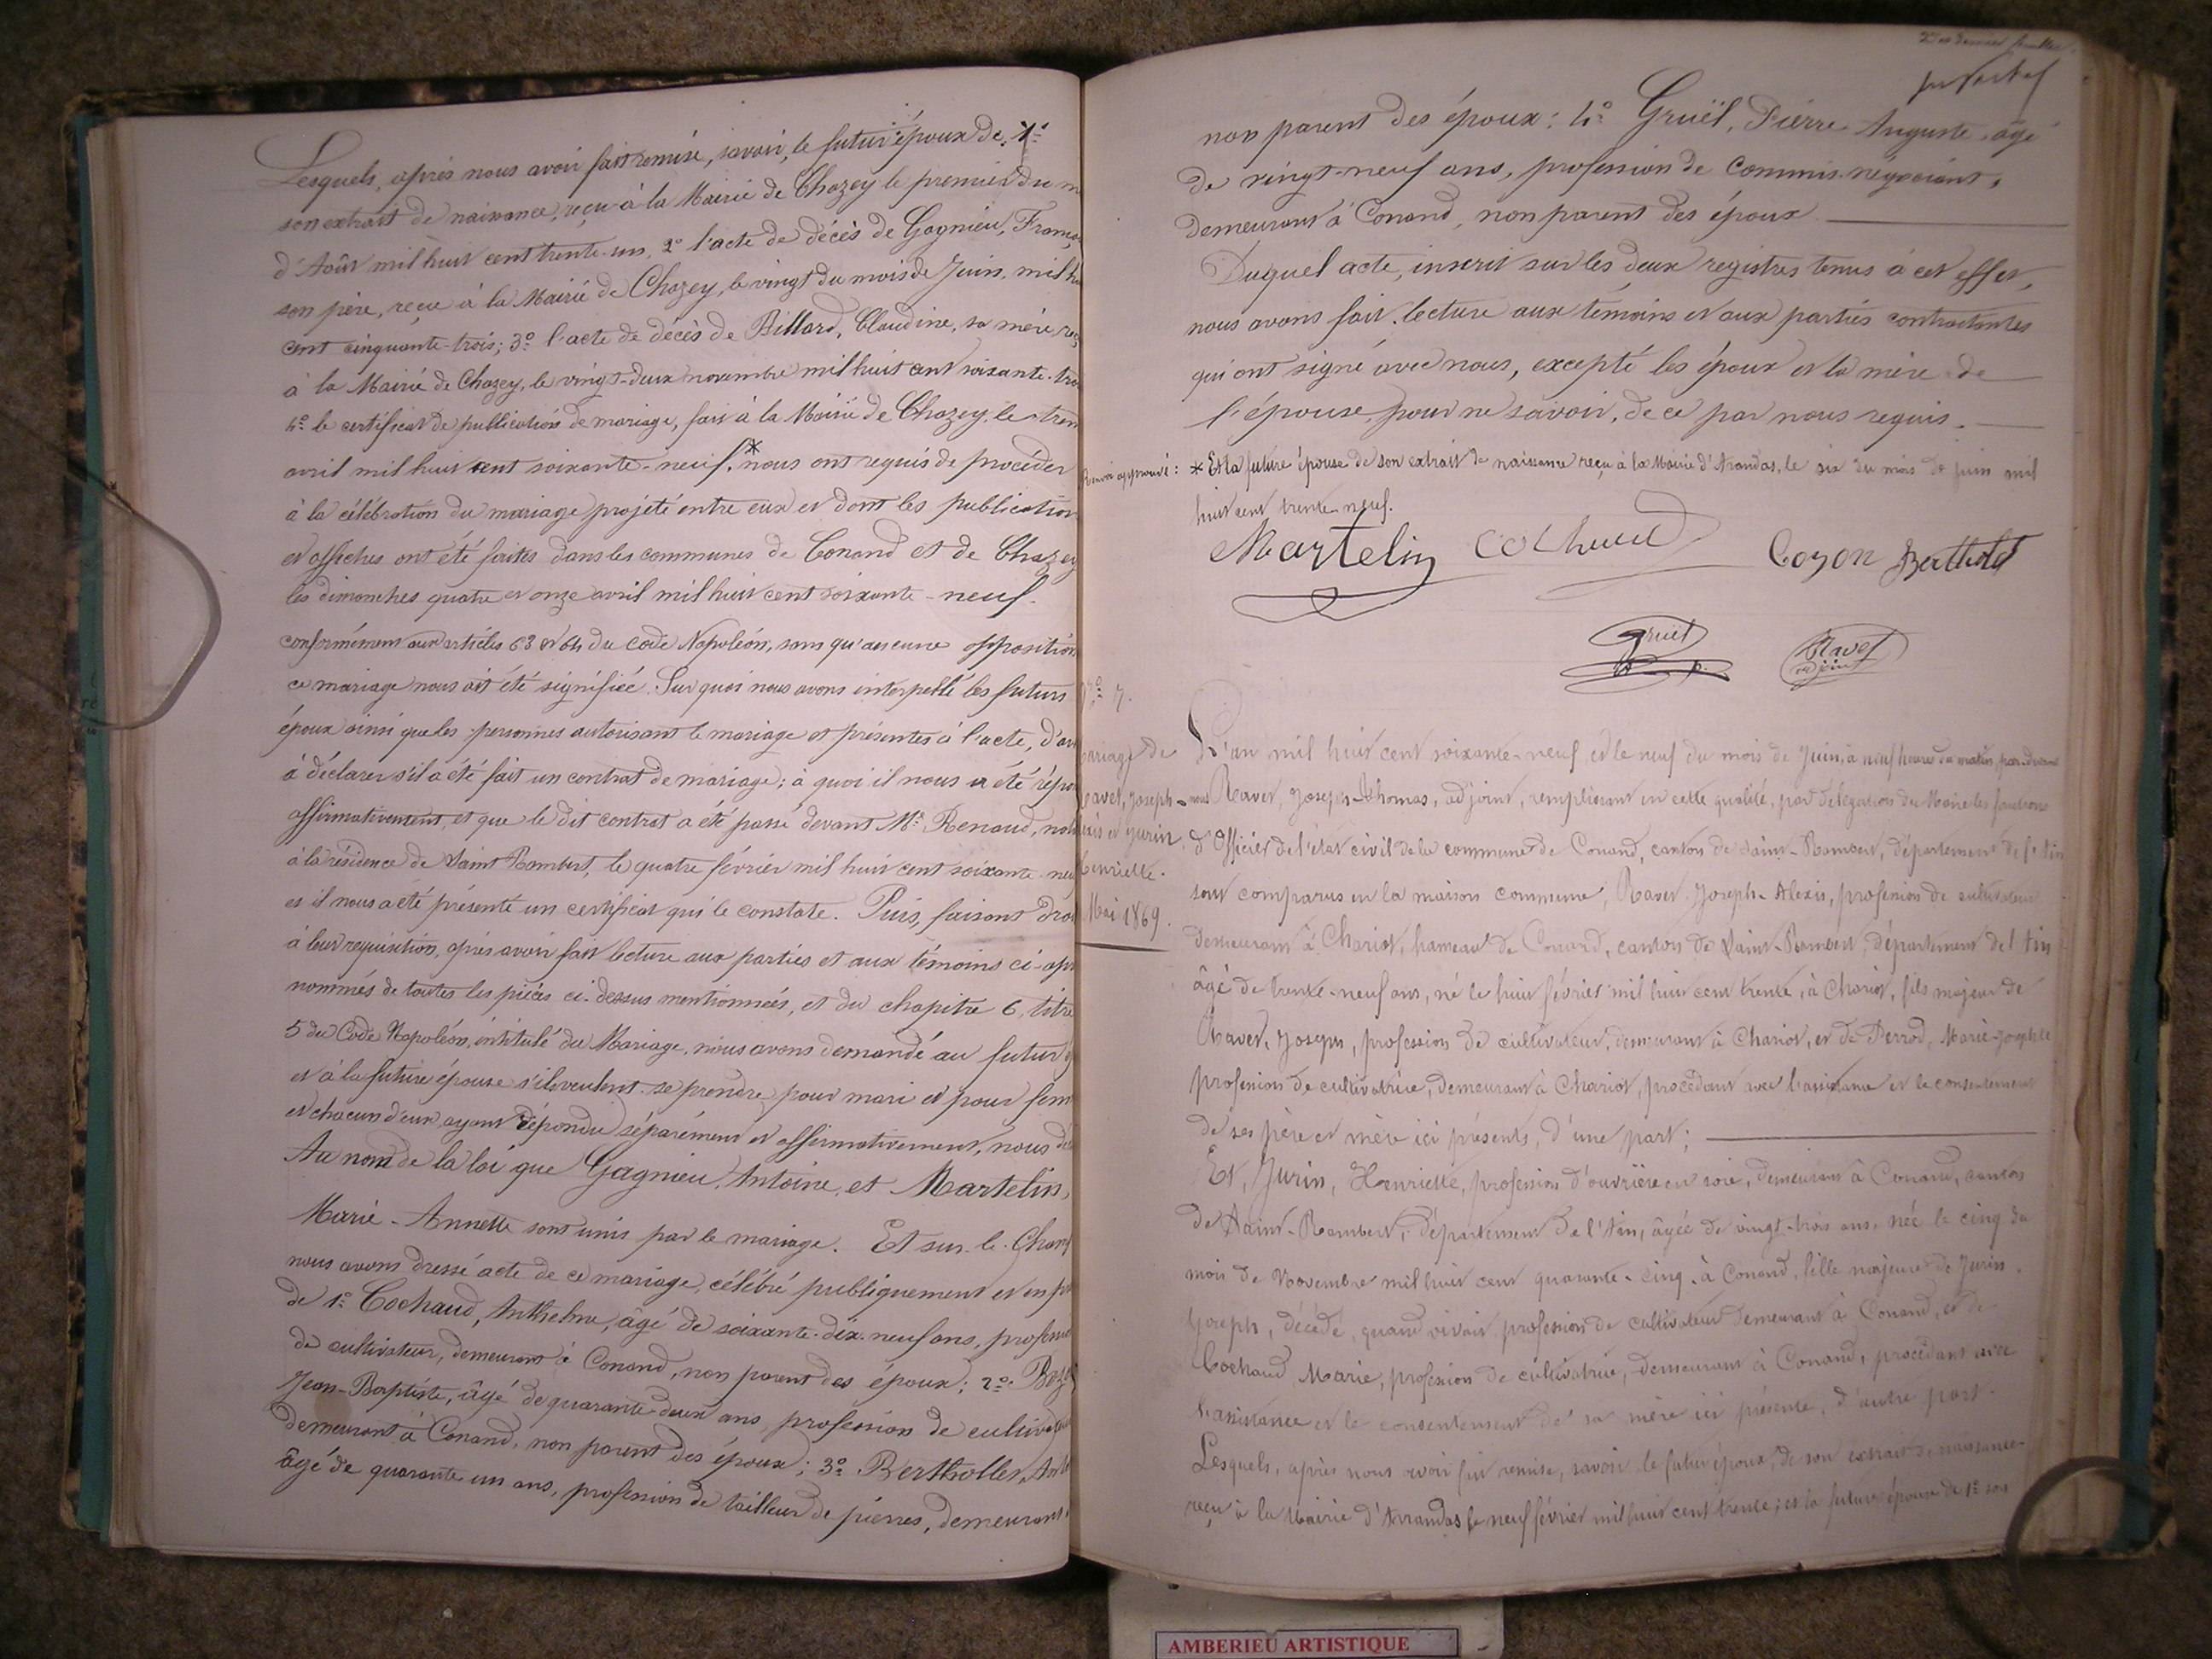 Lesquels, après nous avoir fait remise, savoir, le futur époux de: 1º
son extrait de naissance, reçu à la Mairie de Chazey le premier du m
d'Août mil huit cent trente-un, 2º l'acte de décès de Gagnieu, Franç
son père, reçu à la Mairie de Chazey, le vingt du mois de Juin, mil hu
cent cinquante-trois; 3º l'acte de décès de Billard, Claudine, sa mère reç
à la Mairie de Chazey, le vingt-deux novembre mil huit cent soixante-tro
4º le certificat de publication de mariage, fait à la Mairie de Chazey, le tren
avril mil huit cent soixante-neuf,* nous ont requis de procéder
à la célébration du mariage projeté entre eux et dont les publication
et affiches ont été faites dans les communes de Conand et de Chazey
les dimanches quatre et onze avril mil huit cent soixante-neuf
conformément aux articles 63 et 64 du code Napoléon, sans qu'aucune opposition
ce mariage nous ait été signifiée. Sur quoi nous avons interpellé les futurs
époux ainsi que les personnes autorisant le mariage et présentes à l'acte, d'av
à déclarer s'il a été fait un contrat de mariage; à quoi il nous a été répon
affirmativement, et que le dit contrat a été passé devant Mº Renaud, nota
à la résidence de Saint Rambert, le quatre février mil huit cent soixante-neu
et il nous a été présenté un certificat qui le constate. Puis, faisant droi
à leur requisition, après avoir fait lecture aux parties et aux témoins ci-apr
nommés de toutes les pièces ci-dessus mentionnées, et du chapitre 6, titre
5 du Code Napoléon, intitulé du Mariage, nous avons demandé au futur é
et à la future épouse s'ils veulent se prendre pour mari et pour fem
et chacun d'eux ayant répondu séparément et affirmativement, nous dé
Au nom de la loi que Gagnieu, Antoine, et Martelin,
Marie-Annette sont unis par le mariage. Et sur-le-Cham
nous avons dressé acte de ce mariage, célébré publiquement et en pr
de 1º Cochaud, Anthelme, âgé de soixante-dix-neuf ans, profession
de cultivateur, demeurant à Conand, non parent des époux; 2º
Jean-Baptiste, âgé de quarante-deux ans, profession de cultivateur
demeurant à Conand, non parent des époux; 3º Berthollet, Anth
âgé de quarante un ans, profession de tailleur de pierres, demeurant
non parent des époux: 4º Gruël, Pierre Auguste, âgé
de vingt-neuf ans, profession de Commis-négociant,
demeurant à Conand, non parent des époux
Duquel acte, inscrit sur les deux registres tenus à cet effet,
nous avons fait lecture aux témoins et aux parties contractantes
qui ont signé avec nous, excepté les époux et la mère de
l'épouse, pour ne savoir, de ce par nous requis.
Renvoi approuvé: * Et la future épouse de son extrait de naissance reçu à la Mairie d'Arandas, le six du mois de juin mil
huit cent trente-neuf.
Martelin Cochaud Cozon Berthollet
Gruël Ravet adjoint
Nº 7.
Mariage de
Ravet, Joseph-
Alexis et Jurin,
Henriette.
Mai 1869.
L'an mil huit cent soixante-neuf et le neuf du mois de Juin, à neuf heures du matin, par-devant
nous Ravet, Joseph-Thomas, adjoint, remplissant en cette qualité, par délégation du Maire les fonctions
d'Officier de l'état civil de la commune de Conand, canton de Saint-Rambert, département de l'Ain
sont comparus en la maison commune, Ravet Joseph-Alexis, profession de cultivateur
demeurant à Chariot, hameau de Conand, canton de Saint-Rambert, département de l'Ain
âgé de trente-neuf ans, né le huit février mil huit cent trente, à Chariot, fils majeur de
Ravet, Joseph, profession de cultivateur, demeurant à Chariot, et de Perrod, Marie-Josephte
profession de cultivatrice, demeurant à Chariot, procédant avec l'assistance et le consentement
de ses père et mère ici présents, d'une part;
Et, Jurin, Henriette, profession d'ouvrière en soie, demeurant à Conand, canton
de Saint-Rambert, département de l'Ain, âgée de vingt-trois ans, née le cinq du
mois de Novembre mil huit cent quarante-cinq, à Conand, fille majeure de Jurin,
Joseph, décédé, quand vivait profession de cultivateur demeurant à Conand, et de
Cochaud, Marie, profession de cultivatrice, demeurant à Conand, procédant avec
l'assistance et le consentement de sa mère ici présente, d'autre part.
Lesquels, après nous avoir fait remise, savoir le futur époux, de son extrait de naissance
reçu à la Mairie d'Arrandas le neuf février mil huit cent trente; et la future épouse de 1º son
AMBERIEU ARTISTIQUE